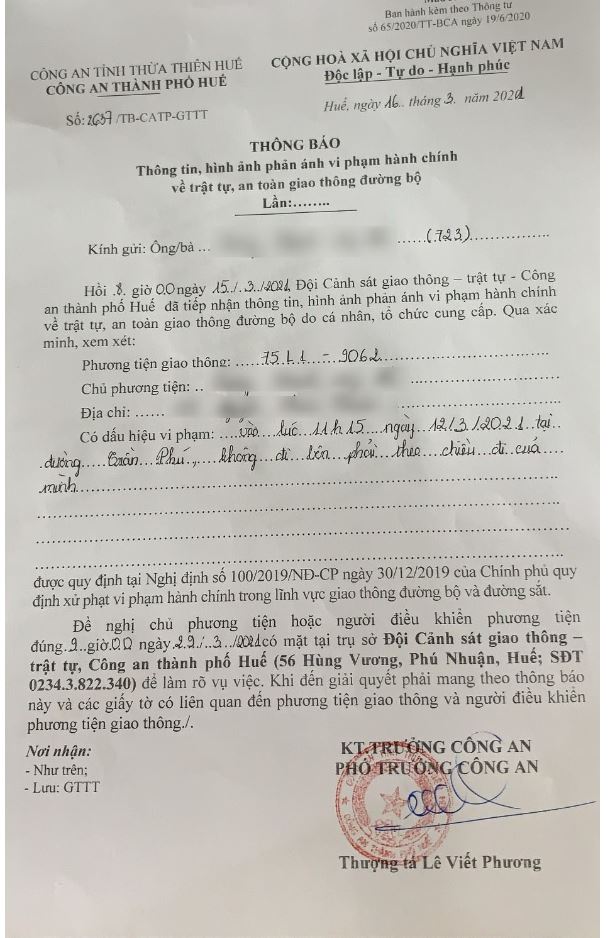 Ban hành kèm theo Thông tư
số 65/2020/TT-BCA ngày 19/6/2020
CÔNG AN TỈNH THỪA THIÊN HUẾ
CÔNG AN THÀNH PHỐ HUẾ
CỘNG HOÀ XÃ HỘI CHỦ NGHĨA VIỆT NAM
Độc lập - Tự do - Hạnh phúc
Số: 2637/TB-CATP-GTTT
Huế, ngày 16.. tháng 3. năm 2021
THÔNG BÁO
Thông tin, hình ảnh phản ánh vi phạm hành chính
về trật tự, an toàn giao thông đường bộ
Lần:........
Kính gửi: Ông/bà ... ......(723)................
Hồi .8. giờ 00 ngày 15./.3./2021, Đội Cảnh sát giao thông – trật tự - Công
an thành phố Huế đã tiếp nhận thông tin, hình ảnh phản ánh vi phạm hành chính
về trật tự, an toàn giao thông đường bộ do cá nhân, tổ chức cung cấp. Qua xác
minh, xem xét:
Phương tiện giao thông: ......75L1 - 9062..............................
Chủ phương tiện: ..
Địa chỉ: ......
Có dấu hiệu vi phạm: ...vào...lúc...11h15...ngày...12/3/2021...tại..
.đường.....Trần...Phú.,...không...đi...bên...phải...theo...chiều...đi...của....
mình.................................................................
được quy định tại Nghị định số 100/2019/NĐ-CP ngày 30/12/2019 của Chính phủ quy
định xử phạt vi phạm hành chính trong lĩnh vực giao thông đường bộ và đường sắt.
Đề nghị chủ phương tiện hoặc người điều khiển phương tiện
đúng.9..giờ.00 ngày.29./..3../2021có mặt tại trụ sở Đội Cảnh sát giao thông –
trật tự, Công an thành phố Huế (56 Hùng Vương, Phú Nhuận, Huế; SĐT
0234.3.822.340) để làm rõ vụ việc. Khi đến giải quyết phải mang theo thông báo
này và các giấy tờ có liên quan đến phương tiện giao thông và người điều khiển
phương tiện giao thông./.
Nơi nhận:
- Như trên;
- Lưu: GTTT
KT.TRƯỞNG CÔNG AN
PHÓ TRƯỞNG CÔNG AN
Thượng tá Lê Viết Phương